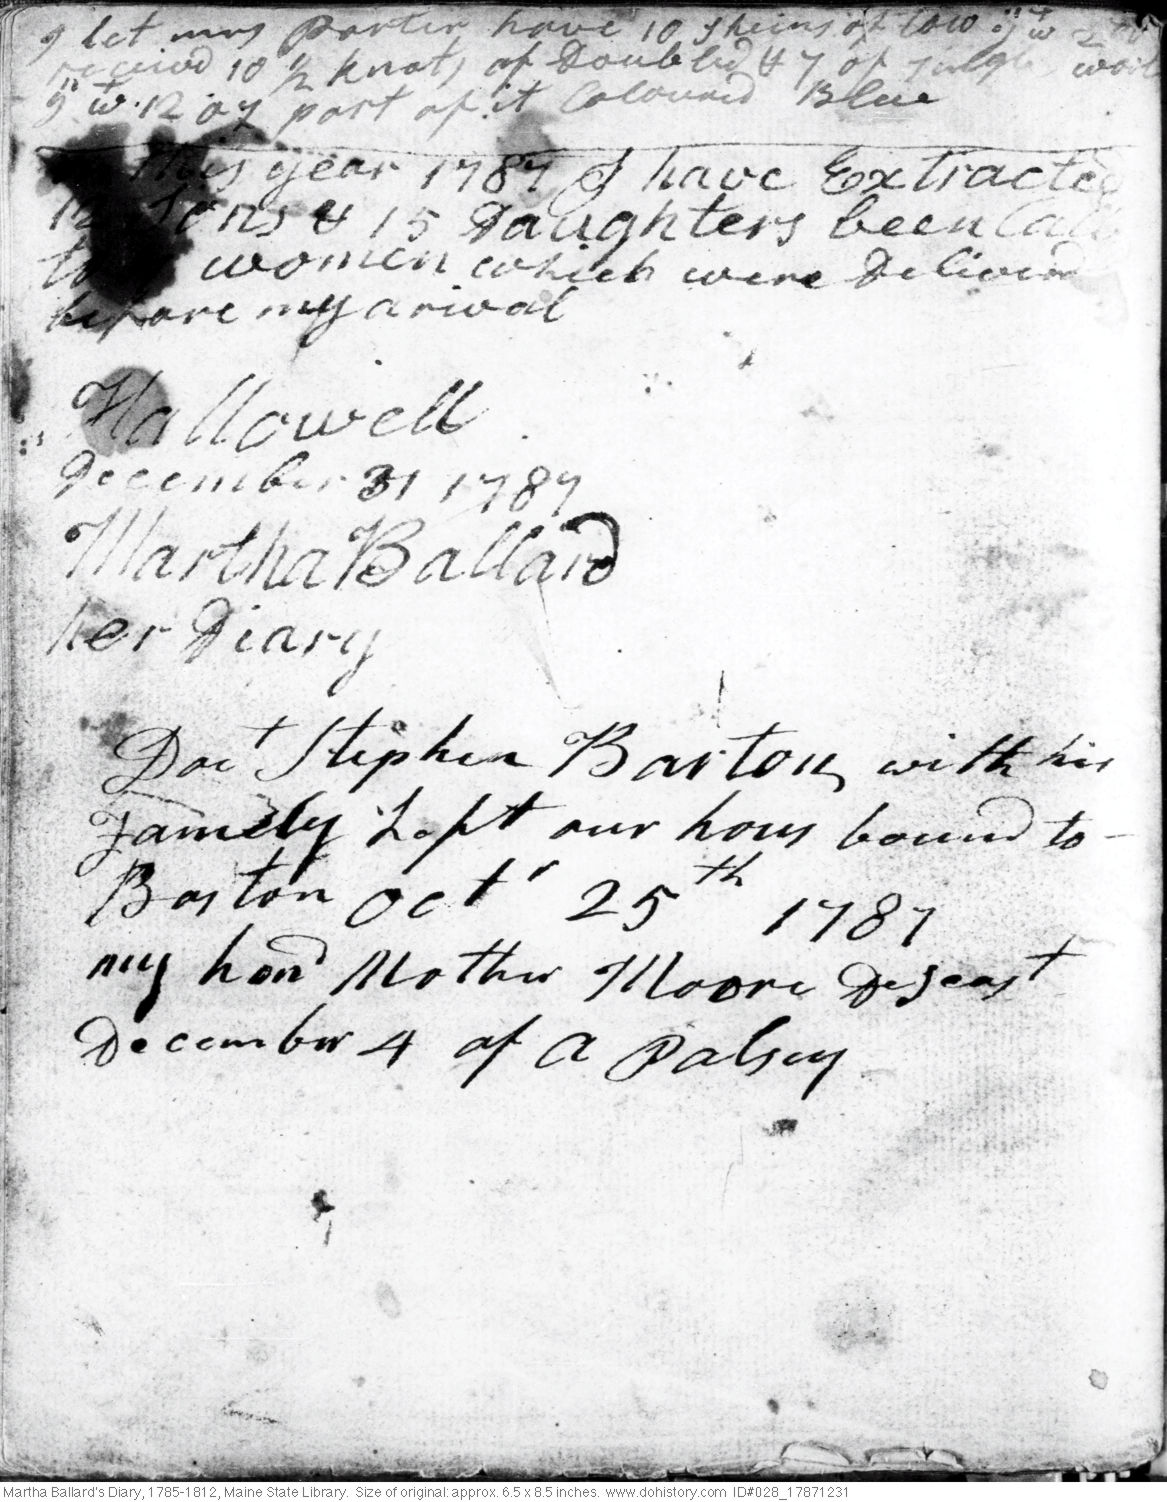 I let mrs Porter have 10 Skeins of tow yn wt 2
received 10 1/2 knots of Doubled & 7 of Single
yn wt 12 oz part of it Coloured Blue
this year 1787 I have Extracted
Sons & 15 Daughters been
to women which were Deliverd
before my arival
Hallowell
December 31 1787
Martha Ballard
her Diary
Doct Stephen Barton with his
Famely Left our hous bound to -
Boston Octr 25th 1787
my hond Mother Moore Deseast
December 4 of a Palsey
Martha Ballard's Diary, 1785-1812, Maine State Library. Size of original: approx. 6.5 x 8.5 inches. www.dohistory.com ID#028_17871231